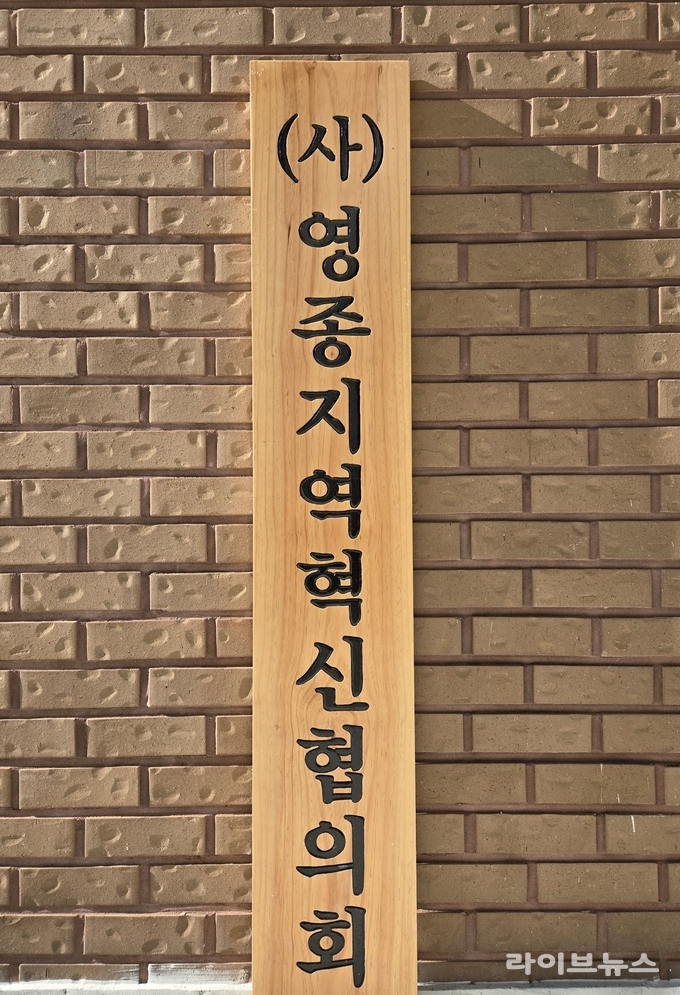 (사)영종지역혁신협의회
라이브뉴스